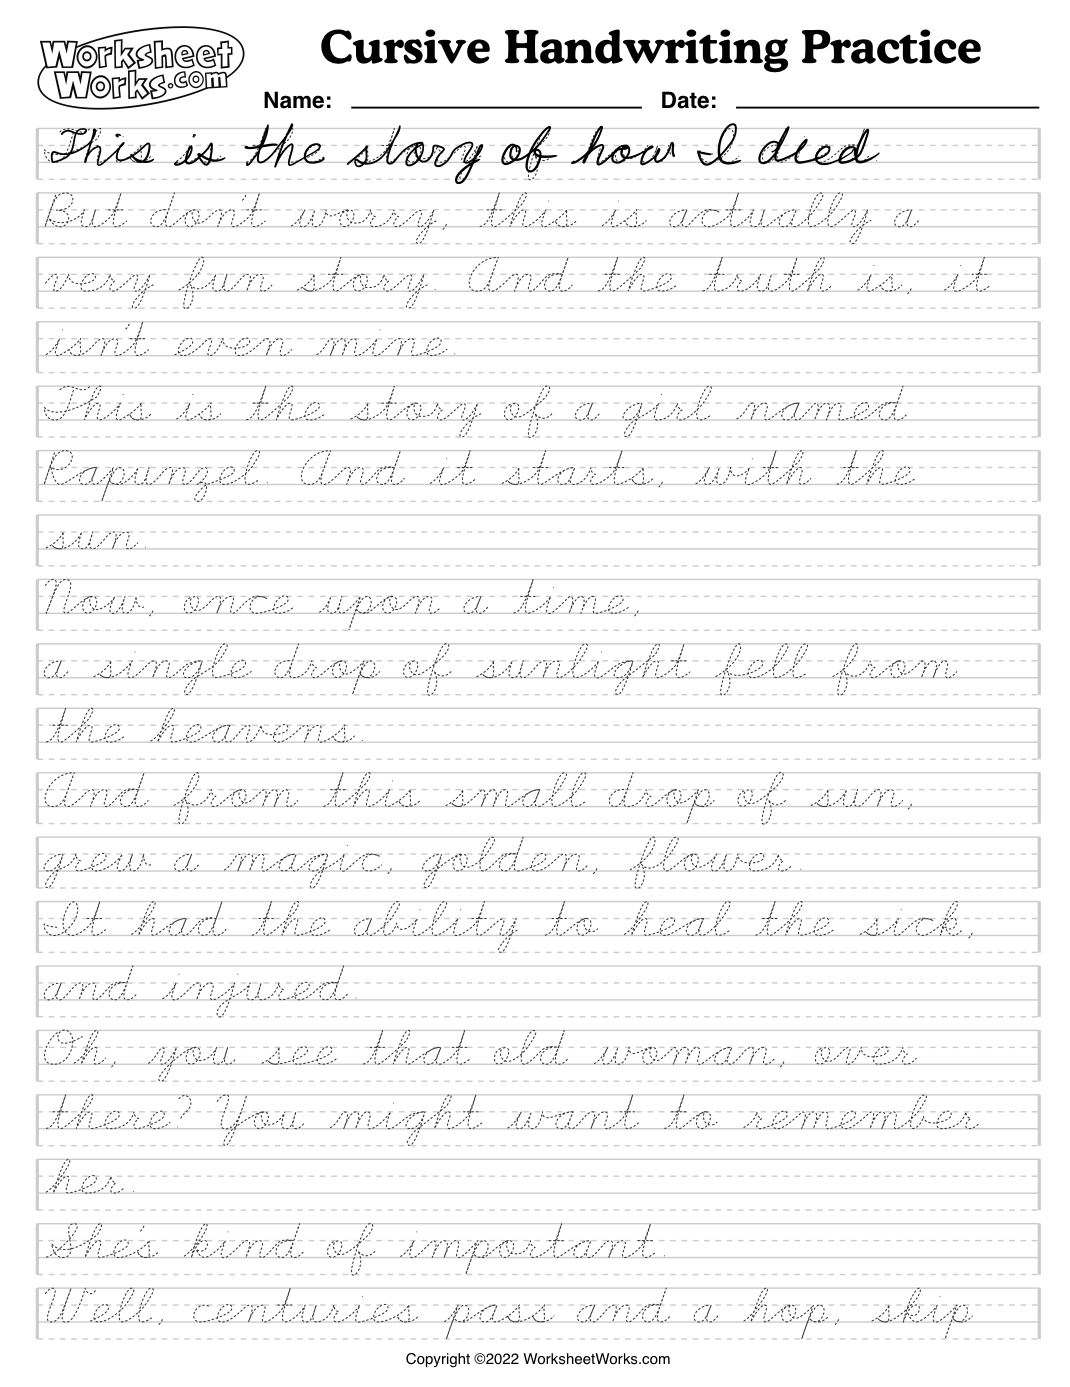 Worksheet
Works.com
Cursive Handwriting Practice
Name: Date:
This is the story of how I died
But don't worry, this is actually a
very fun story. And the truth is, it
isn't even mine.
This is the story of a girl named
Rapunzel. And it starts, with the
sun.
Now, once upon a time,
a single drop of sunlight fell from
the heavens.
And from this small drop of sun,
grew a magic, golden, flower.
It had the ability to heal the sick,
and injured.
Oh, you see that old woman, over
there? You might want to remember
her.
She's kind of important.
Well, centuries pass and a hop, skip
Copyright ©2022 WorksheetWorks.com